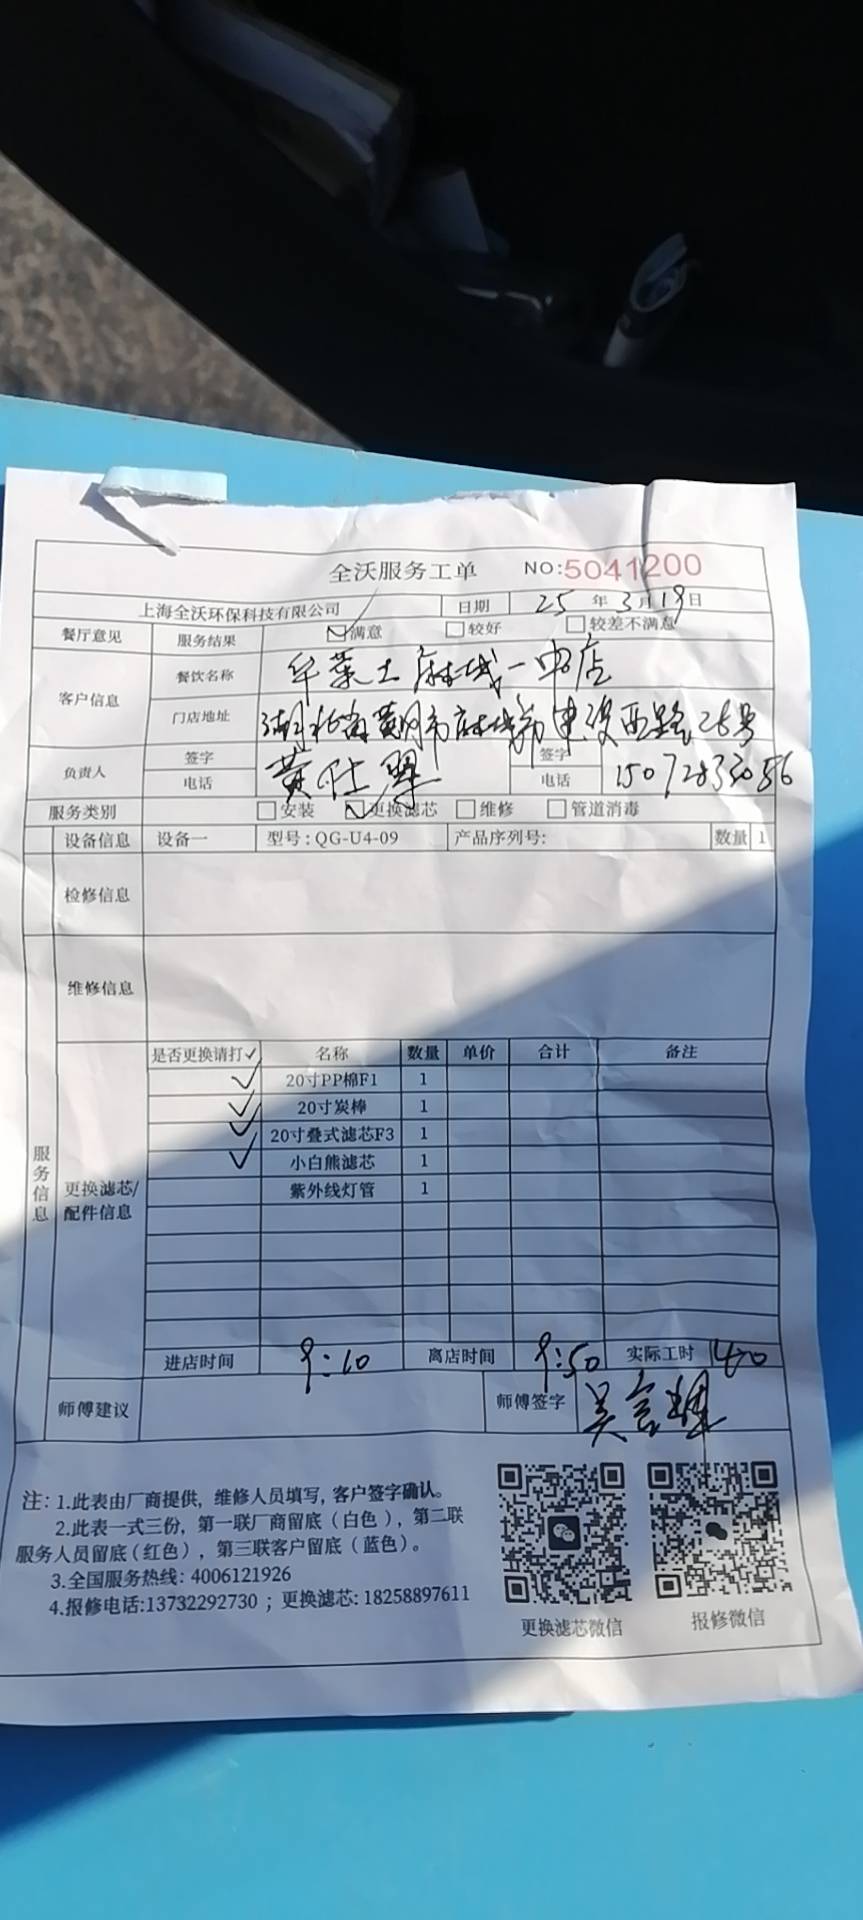 全沃服务工单 NO:5041200
上海全沃环保科技有限公司 日期 25年3月19日
餐厅意见 服务结果 ☑满意 □较好 □较差不满意
客户信息 餐饮名称 华莱士麻城一中店
门店地址 湖北省黄冈市麻城市陵西路28号
负责人 签字 黄仕翠 签字
电话 电话 15072833086
服务类别 □安装 ☑更换滤芯 □维修 □管道消毒
设备信息 设备一 型号:QG-U4-09 产品序列号: 数量 1
检修信息
维修信息
服务信息
更换滤芯/配件信息
是否更换请打✓ 名称 数量 单价 合计 备注
✓ 20寸PP棉F1 1
✓ 20寸炭棒 1
✓ 20寸叠式滤芯F3 1
✓ 小白熊滤芯 1
紫外线灯管 1
进店时间 9:10 离店时间 9:50 实际工时 40
师傅建议 师傅签字 吴
注:1.此表由厂商提供,维修人员填写,客户签字确认。
2.此表一式三份,第一联厂商留底(白色),第二联
服务人员留底(红色),第三联客户留底(蓝色)。
3.全国服务热线:4006121926
4.报修电话:13732292730;更换滤芯:18258897611
更换滤芯微信 报修微信